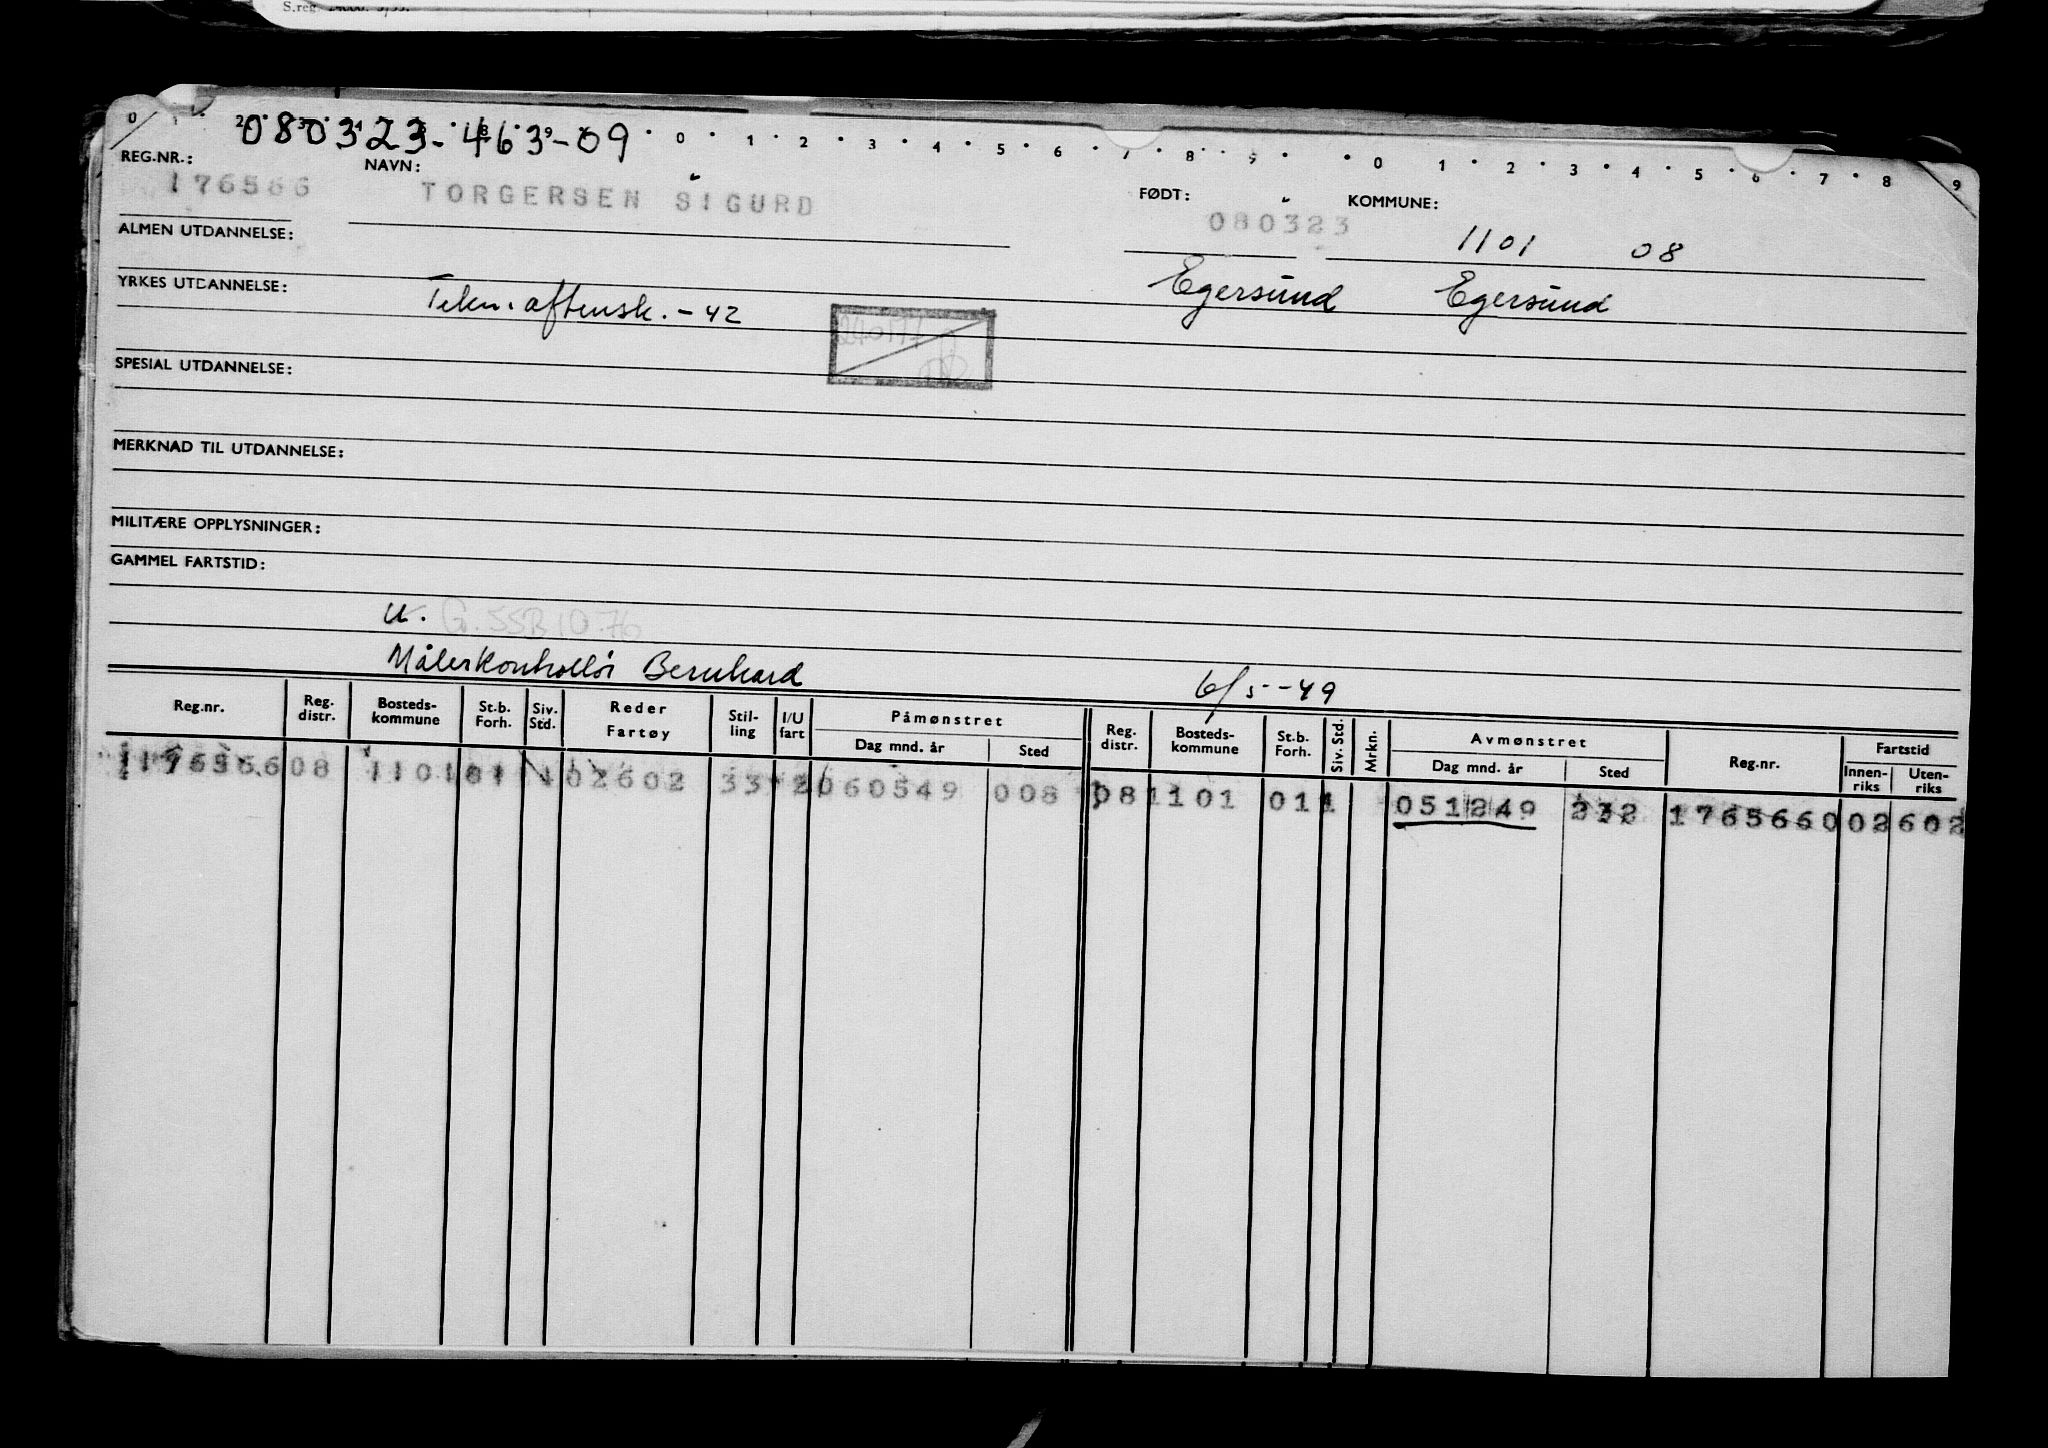 S.reg. 24000. 5/55.
0803 23- 463-09
0 1 2 3 4 5 6 7 8 9 0 1 2 3 4 5 6 7 8 9
REG.NR.: NAVN: FØDT: KOMMUNE:
176566 TORGERSEN SIGURD 080323 1101 08
ALMEN UTDANNELSE:
Egersund Egersund
YRKES UTDANNELSE: Tekn. aftensk. - 42
SPESIAL UTDANNELSE:
MERKNAD TIL UTDANNELSE:
MILITÆRE OPPLYSNINGER:
GAMMEL FARTSTID:
u.
Målerkontrollør Bernhard 6/5--49
Reg.nr. Reg. distr. Bosteds-kommune St.b. Forh. Siv. Std. Reder Fartøy Stil-ling I/U fart Påmønstret Dag mnd. år Sted Reg. distr. Bosteds-kommune St.b. Forh. Siv. Std. Mrkn. Avmønstret Dag mnd. år Sted Reg.nr. Fartstid Innen-riks Uten-riks
1176566 08 1101 01 1 02602 33 2 060549 008 08 1101 01 1 051249 232 1765660 02 602